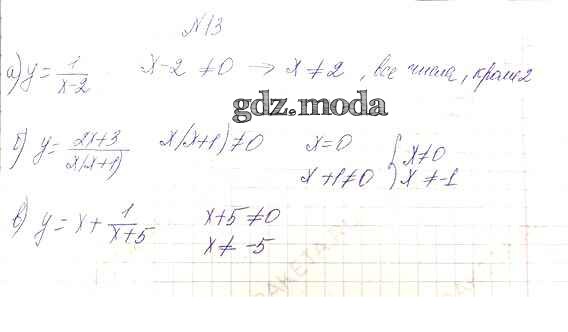 №13
а) y = 1/(x-2) x-2 ≠ 0 → x ≠ 2, все числа, кроме 2
gdz.moda
б) y = (2x+3)/(x(x+1)) x(x+1) ≠ 0 x=0 { x≠0
x+1≠0 x ≠ -1
в) y = x + 1/(x+5) x+5 ≠ 0
x ≠ -5